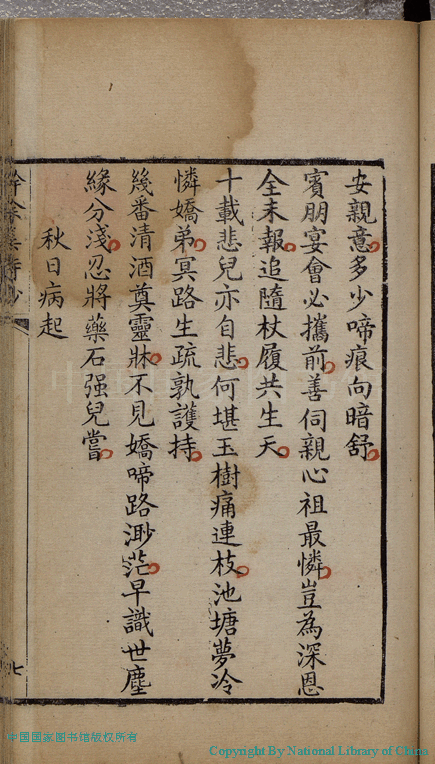 安親意多少啼痕向暗舒
賓朋宴會必攜前善伺親心祖最憐豈為深恩
全未報追隨杖履共生天
十載悲兒亦自悲何堪玉樹痛連枝池塘夢冷
憐嬌弟冥路生疏孰護持
幾番清酒奠靈牀不見嬌啼路渺茫早識世塵
緣分淺忍將藥石强兒嘗
秋日病起
七
中国国家图书馆版权所有
Copyright By National Library of China